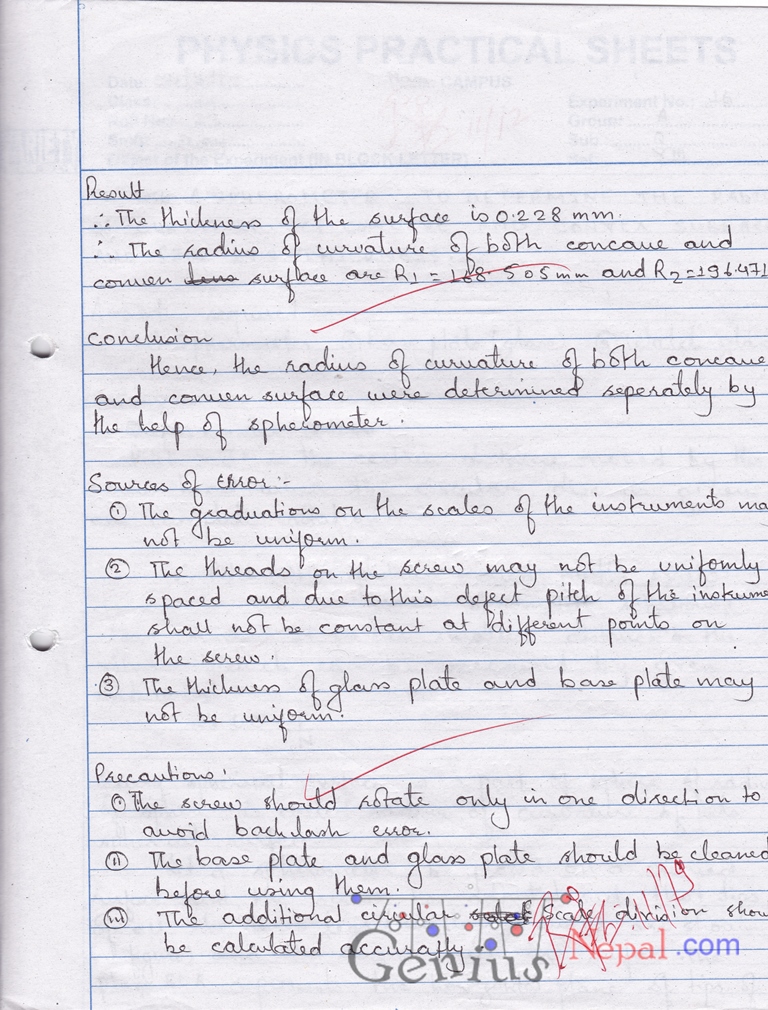 PHYSICS PRACTICAL SHEETS
CAMPUS
Result
∴ The thickness of the surface is 0.228 mm.
∴ The radius of curvature of both concave and
convex surface are R1 = 188.505mm and R2=196.471
Conclusion
Hence, the radius of curvature of both concave
and convex surface were determined seperately by
the help of spherometer.
Sources of Error:-
① The graduations on the scales of the instruments ma
not be uniform.
② The threads on the screw may not be uniformly
spaced and due to this defect pitch of the instrume
shall not be constant at different points on
the screw.
③ The thickness of glass plate and base plate may
not be uniform.
Precautions:
① The screw should rotate only in one direction to
avoid backlash error.
(ii) The base plate and glass plate should be cleaned
before using them.
(iii) The additional circular scale division shou
be calculated accuratly.
Genius Nepal.com